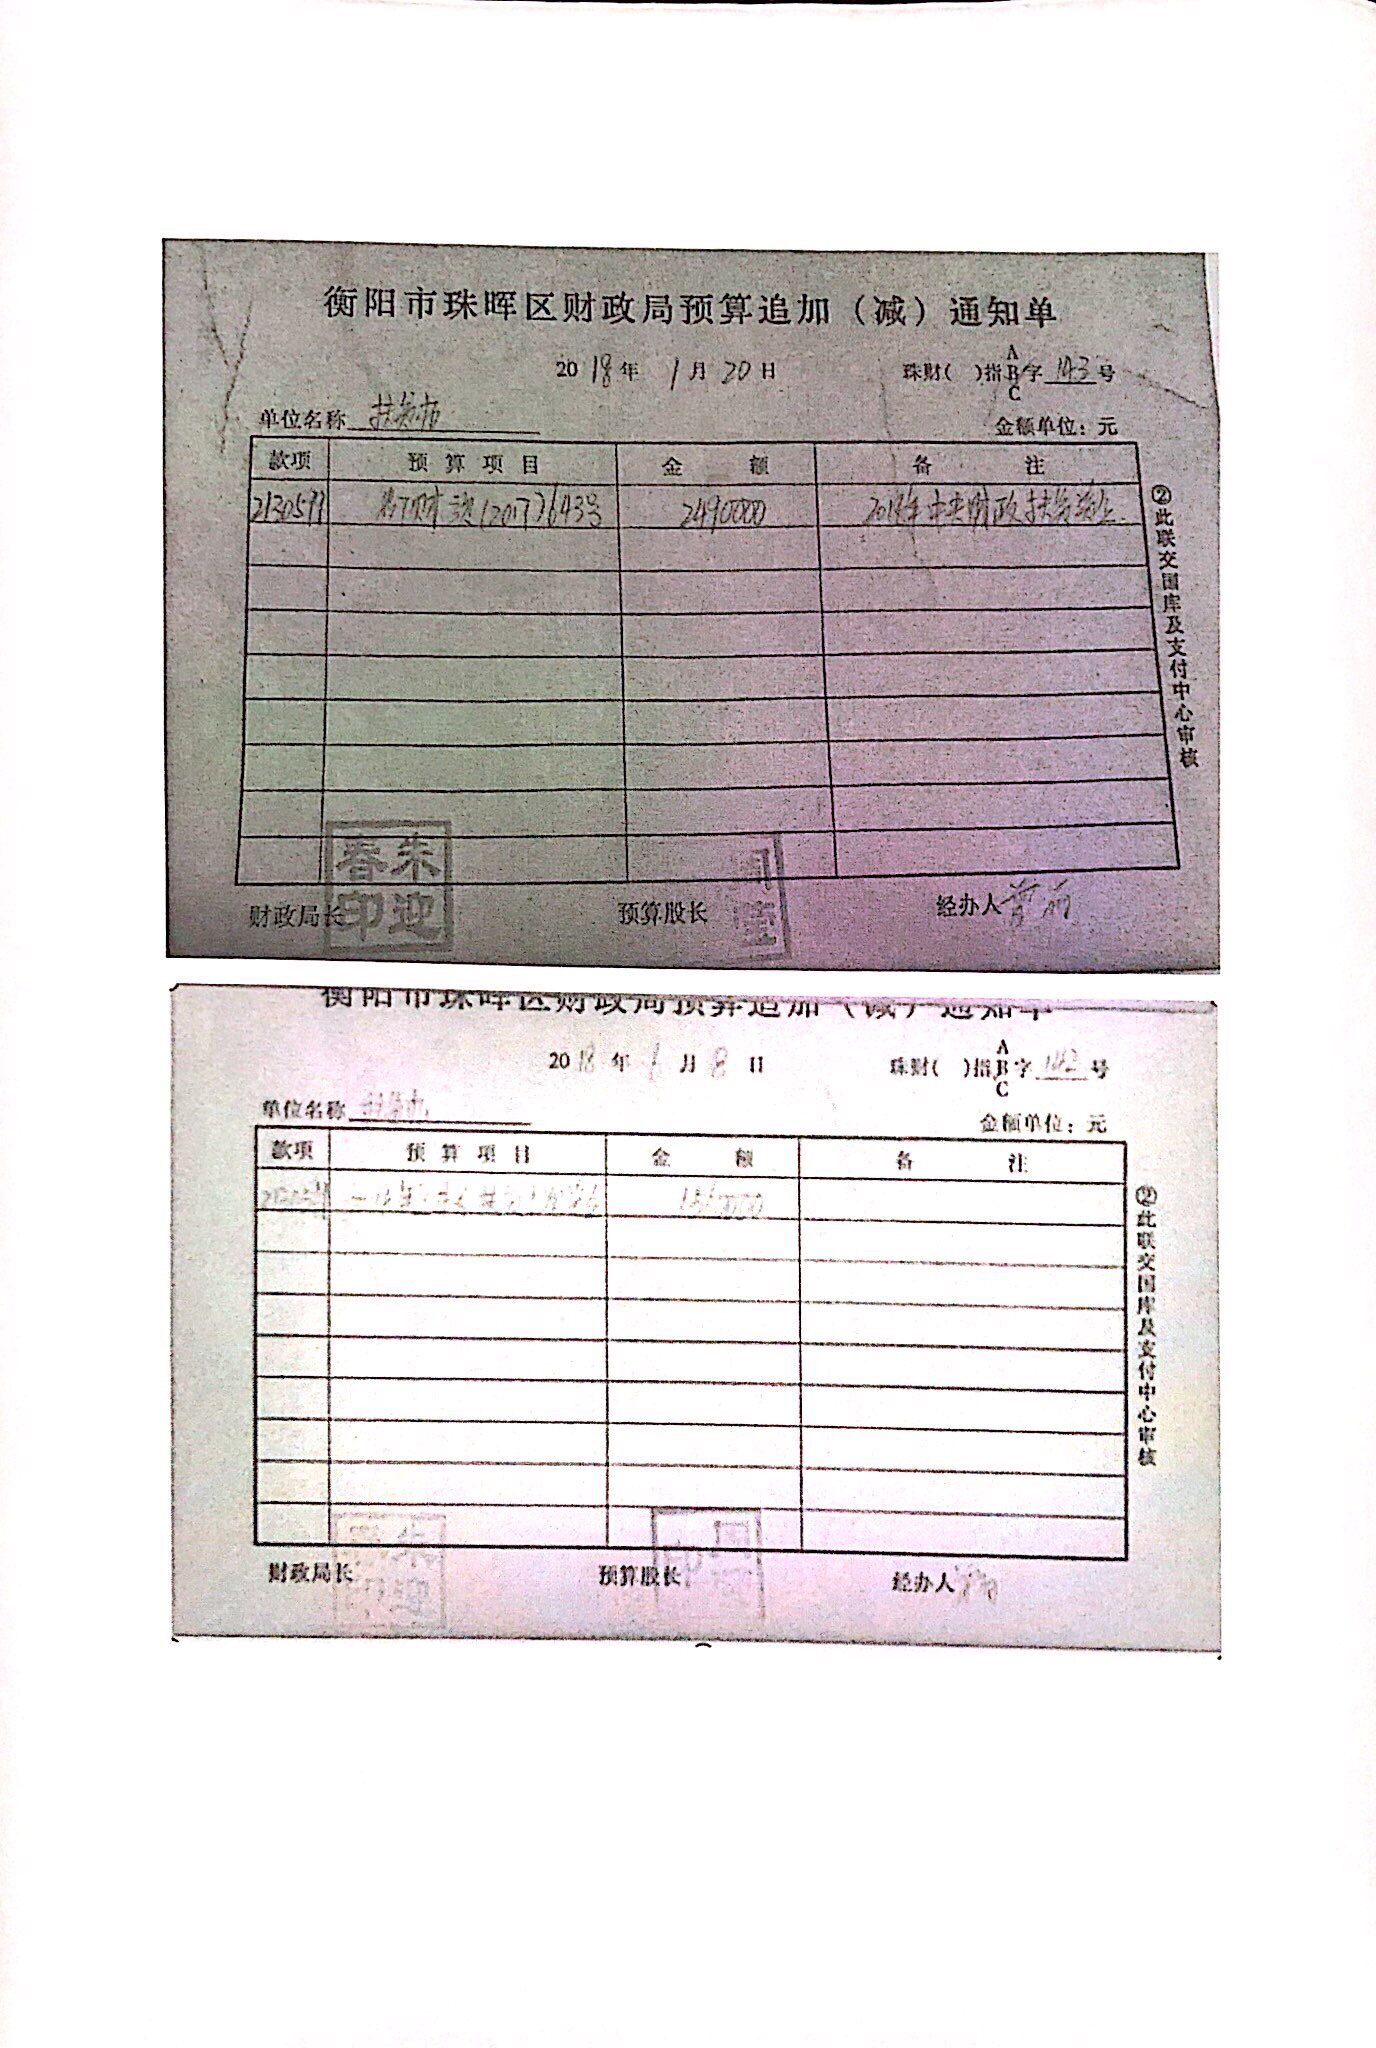 衡阳市珠晖区财政局预算追加（减）通知单
2018年 1月20日 珠财( )指ABC字 143 号
单位名称 扶贫办 金额单位：元
款项 预算项目 金额 备注
2130599 财预(2017)643号 2490000 2018年中央财政扶贫资金
②此联交国库及支付中心审核
财政局长 预算股长 经办人
朱迎春印
衡阳市珠晖区财政局预算追加（减）通知单
2018年 月8日 珠财( )指ABC字 142 号
单位名称 扶贫办 金额单位：元
款项 预算项目 金额 备注
②此联交国库及支付中心审核
财政局长 预算股长 经办人